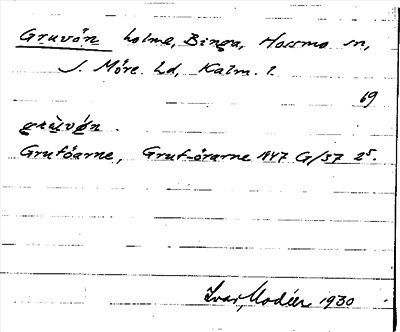 Gruvön holme, Binga, Hossmo sn,
S. Möre hd, Kalm. l.
69
grùvö́n.
Gruföarne, Gruf-örarne 1847 G/37 25.
Ivar Modéer 1930